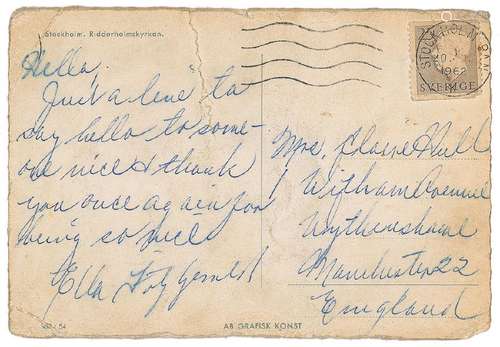 Stockholm. Riddarholmskyrkan.
Hello,
Just a line to
say hello to some-
one nice & thank
you once again for
being so nice
Ella Fitzgerald
Mrs. Elaine Hull
1 Witham Avenue
Wythenshawe
Manchester 22
England
STOCKHOLM BAN
1962
SVERIGE
54
AB GRAFISK KONST